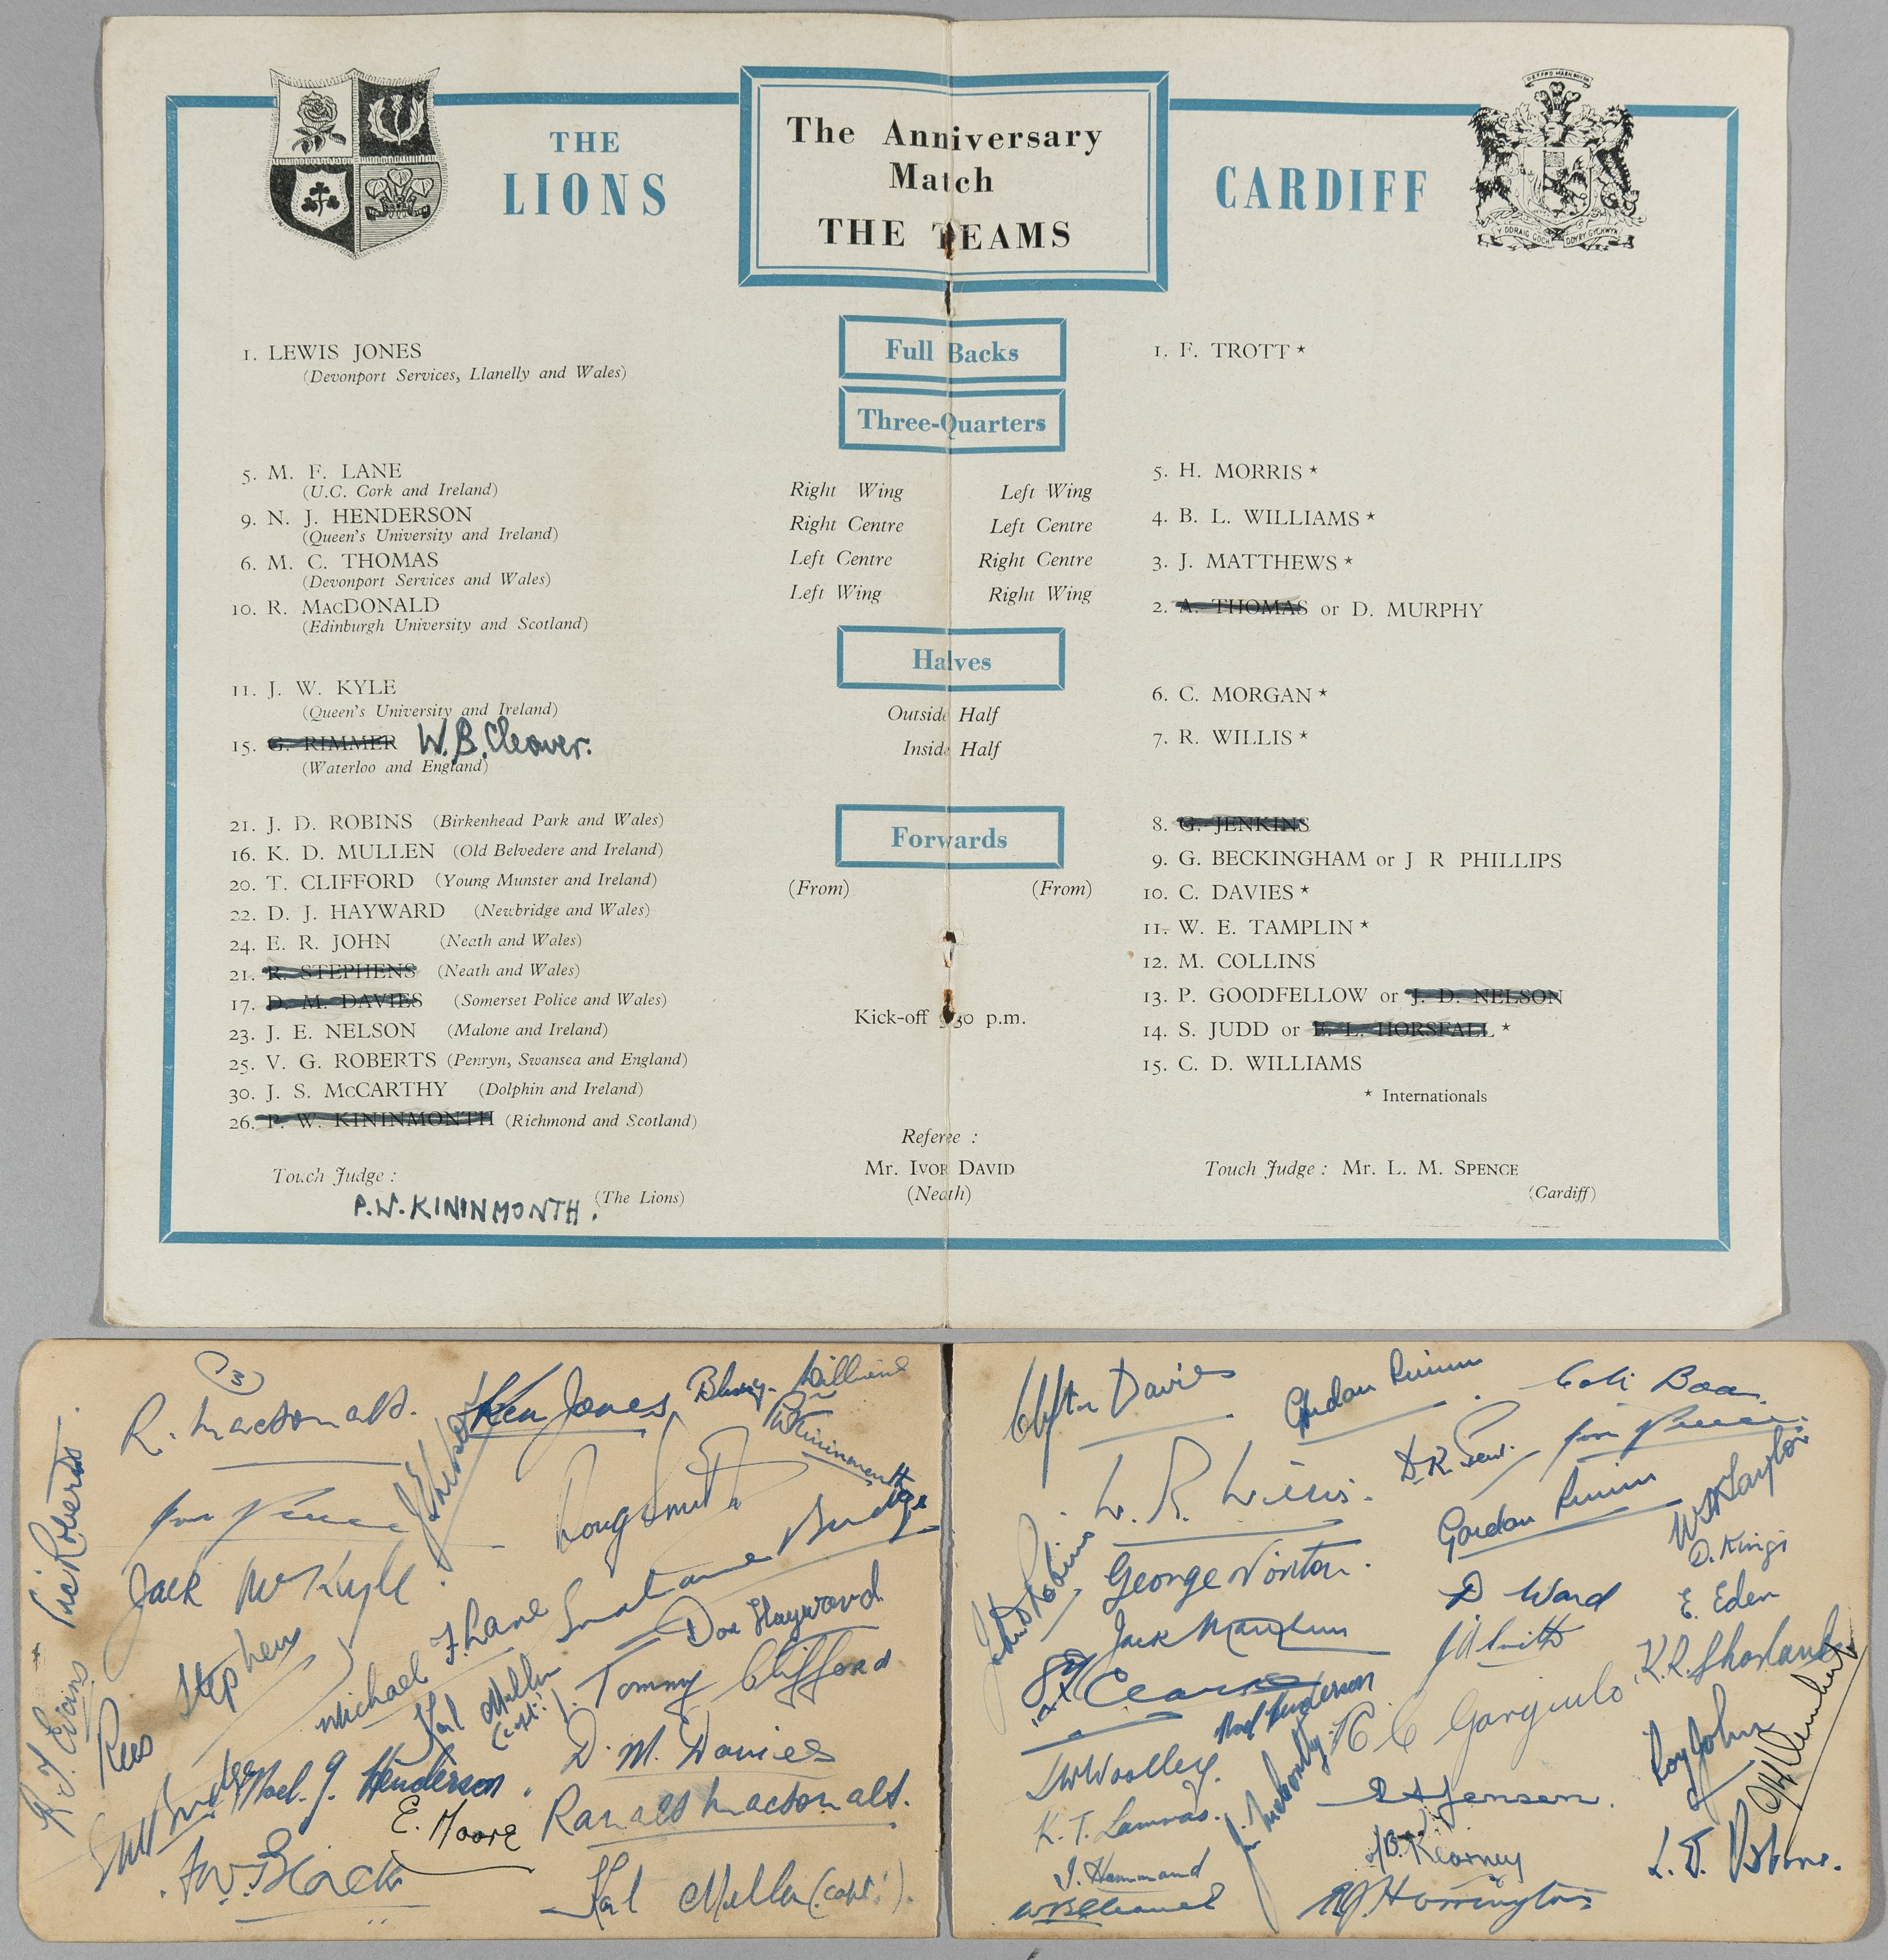 THE
LIONS
The Anniversary
Match
THE TEAMS
CARDIFF
Full Backs
1. LEWIS JONES
(Devonport Services, Llanelly and Wales)
1. F. TROTT ★
Three-Quarters
5. M. F. LANE
(U.C. Cork and Ireland)
9. N. J. HENDERSON
(Queen's University and Ireland)
6. M. C. THOMAS
(Devonport Services and Wales)
10. R. MacDONALD
(Edinburgh University and Scotland)
Right Wing Left Wing
Right Centre Left Centre
Left Centre Right Centre
Left Wing Right Wing
5. H. MORRIS ★
4. B. L. WILLIAMS ★
3. J. MATTHEWS ★
2. A. THOMAS or D. MURPHY
Halves
11. J. W. KYLE
(Queen's University and Ireland)
15. G. RIMMER W.B. Cleaver.
(Waterloo and England)
Outside Half
Inside Half
6. C. MORGAN ★
7. R. WILLIS ★
Forwards
(From) (From)
21. J. D. ROBINS (Birkenhead Park and Wales)
16. K. D. MULLEN (Old Belvedere and Ireland)
20. T. CLIFFORD (Young Munster and Ireland)
22. D. J. HAYWARD (Newbridge and Wales)
24. E. R. JOHN (Neath and Wales)
21. R. STEPHENS (Neath and Wales)
17. D. M. DAVIES (Somerset Police and Wales)
23. J. E. NELSON (Malone and Ireland)
25. V. G. ROBERTS (Penryn, Swansea and England)
30. J. S. McCARTHY (Dolphin and Ireland)
26. P. W. KININMONTH (Richmond and Scotland)
8. G. JENKINS
9. G. BECKINGHAM or J R PHILLIPS
10. C. DAVIES ★
11. W. E. TAMPLIN ★
12. M. COLLINS
13. P. GOODFELLOW or J. D. NELSON
14. S. JUDD or E. L. HORSFALL ★
15. C. D. WILLIAMS
★ Internationals
Kick-off 3.30 p.m.
Referee :
Mr. Ivor DAVID
(Neath)
Touch Judge :
(The Lions)
P.W. KININMONTH.
Touch Judge : Mr. L. M. SPENCE
(Cardiff)
R. Macdonald.
Ken Jones
Bleddyn Williams
P.W. Kininmonth
Vic Roberts
Doug Smith
Grahame Budge
Jack McKyle
Don Hayward
Michael F. Lane
Tommy Clifford
Rees Stephens
Karl Mullen
(capt.)
R. T. Evans
D. M. Davies
Noel J. Henderson
E. Moore
Ranald Macdonald.
A W Black
Karl Mullen (capt.).
Clifton Davies
Gordon Rimmer
W. R. Willis.
Gordon Rimmer
W H Taylor
D. Kings
George Norton.
D Ward
E. Eden
John D Robins
Jack Matthews
J A Smith
K. R. Sharland
Noel Henderson
R C Gargiulo
J W Woolley.
Roy John
K. T. Lammas.
S H Jensen.
J. Hammond
J B Kearney
L. T. Osborne.
W B Cleaver
R J Horrington